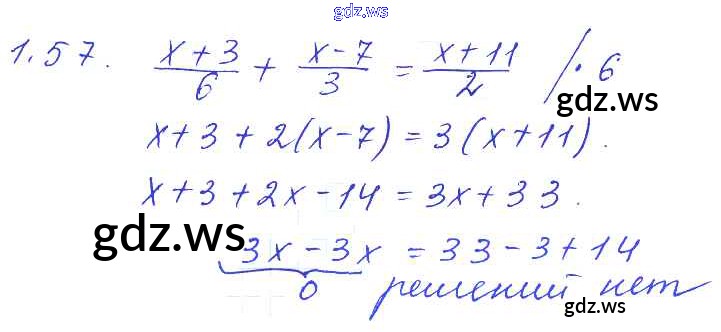 gdz.ws
1.57. (x+3)/6 + (x-7)/3 = (x+11)/2 /·6
gdz.ws
x+3+2(x-7)=3(x+11).
x+3+2x-14=3x+33.
gdz.ws
3x-3x=33-3+14
0 решений нет
gdz.ws